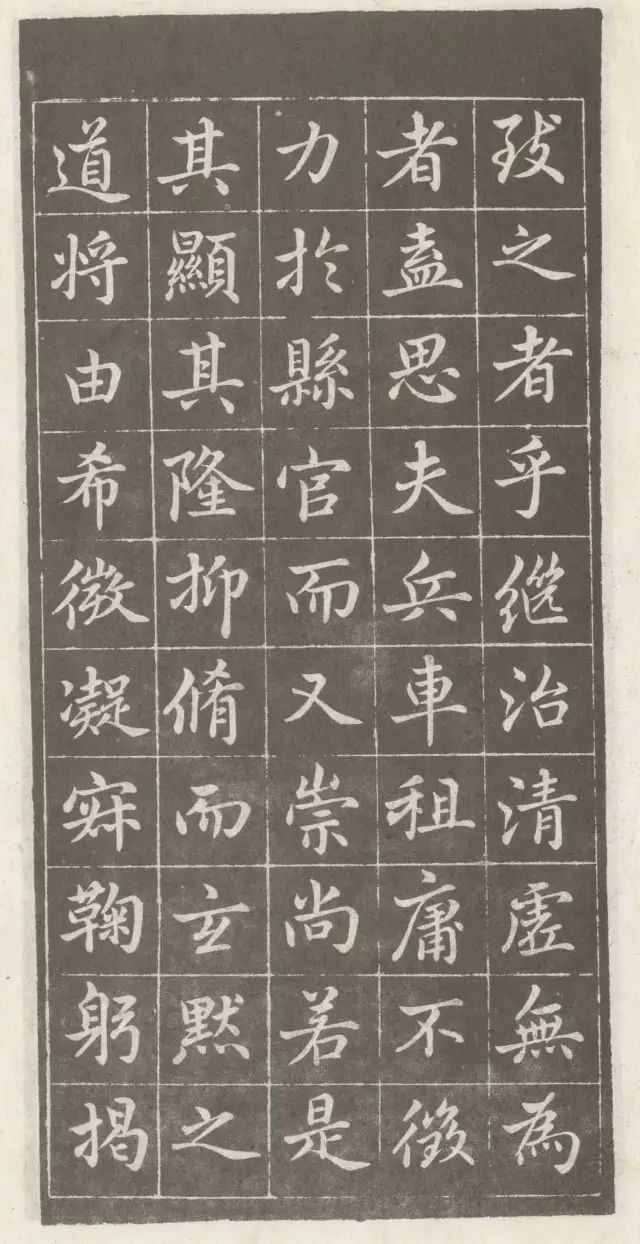 致之者乎繼治清虛無為
者盖思夫兵車租庸不徵
力於縣官而又崇尚若是
其顯其隆抑脩而玄默之
道将由希微凝寂鞠躬揭